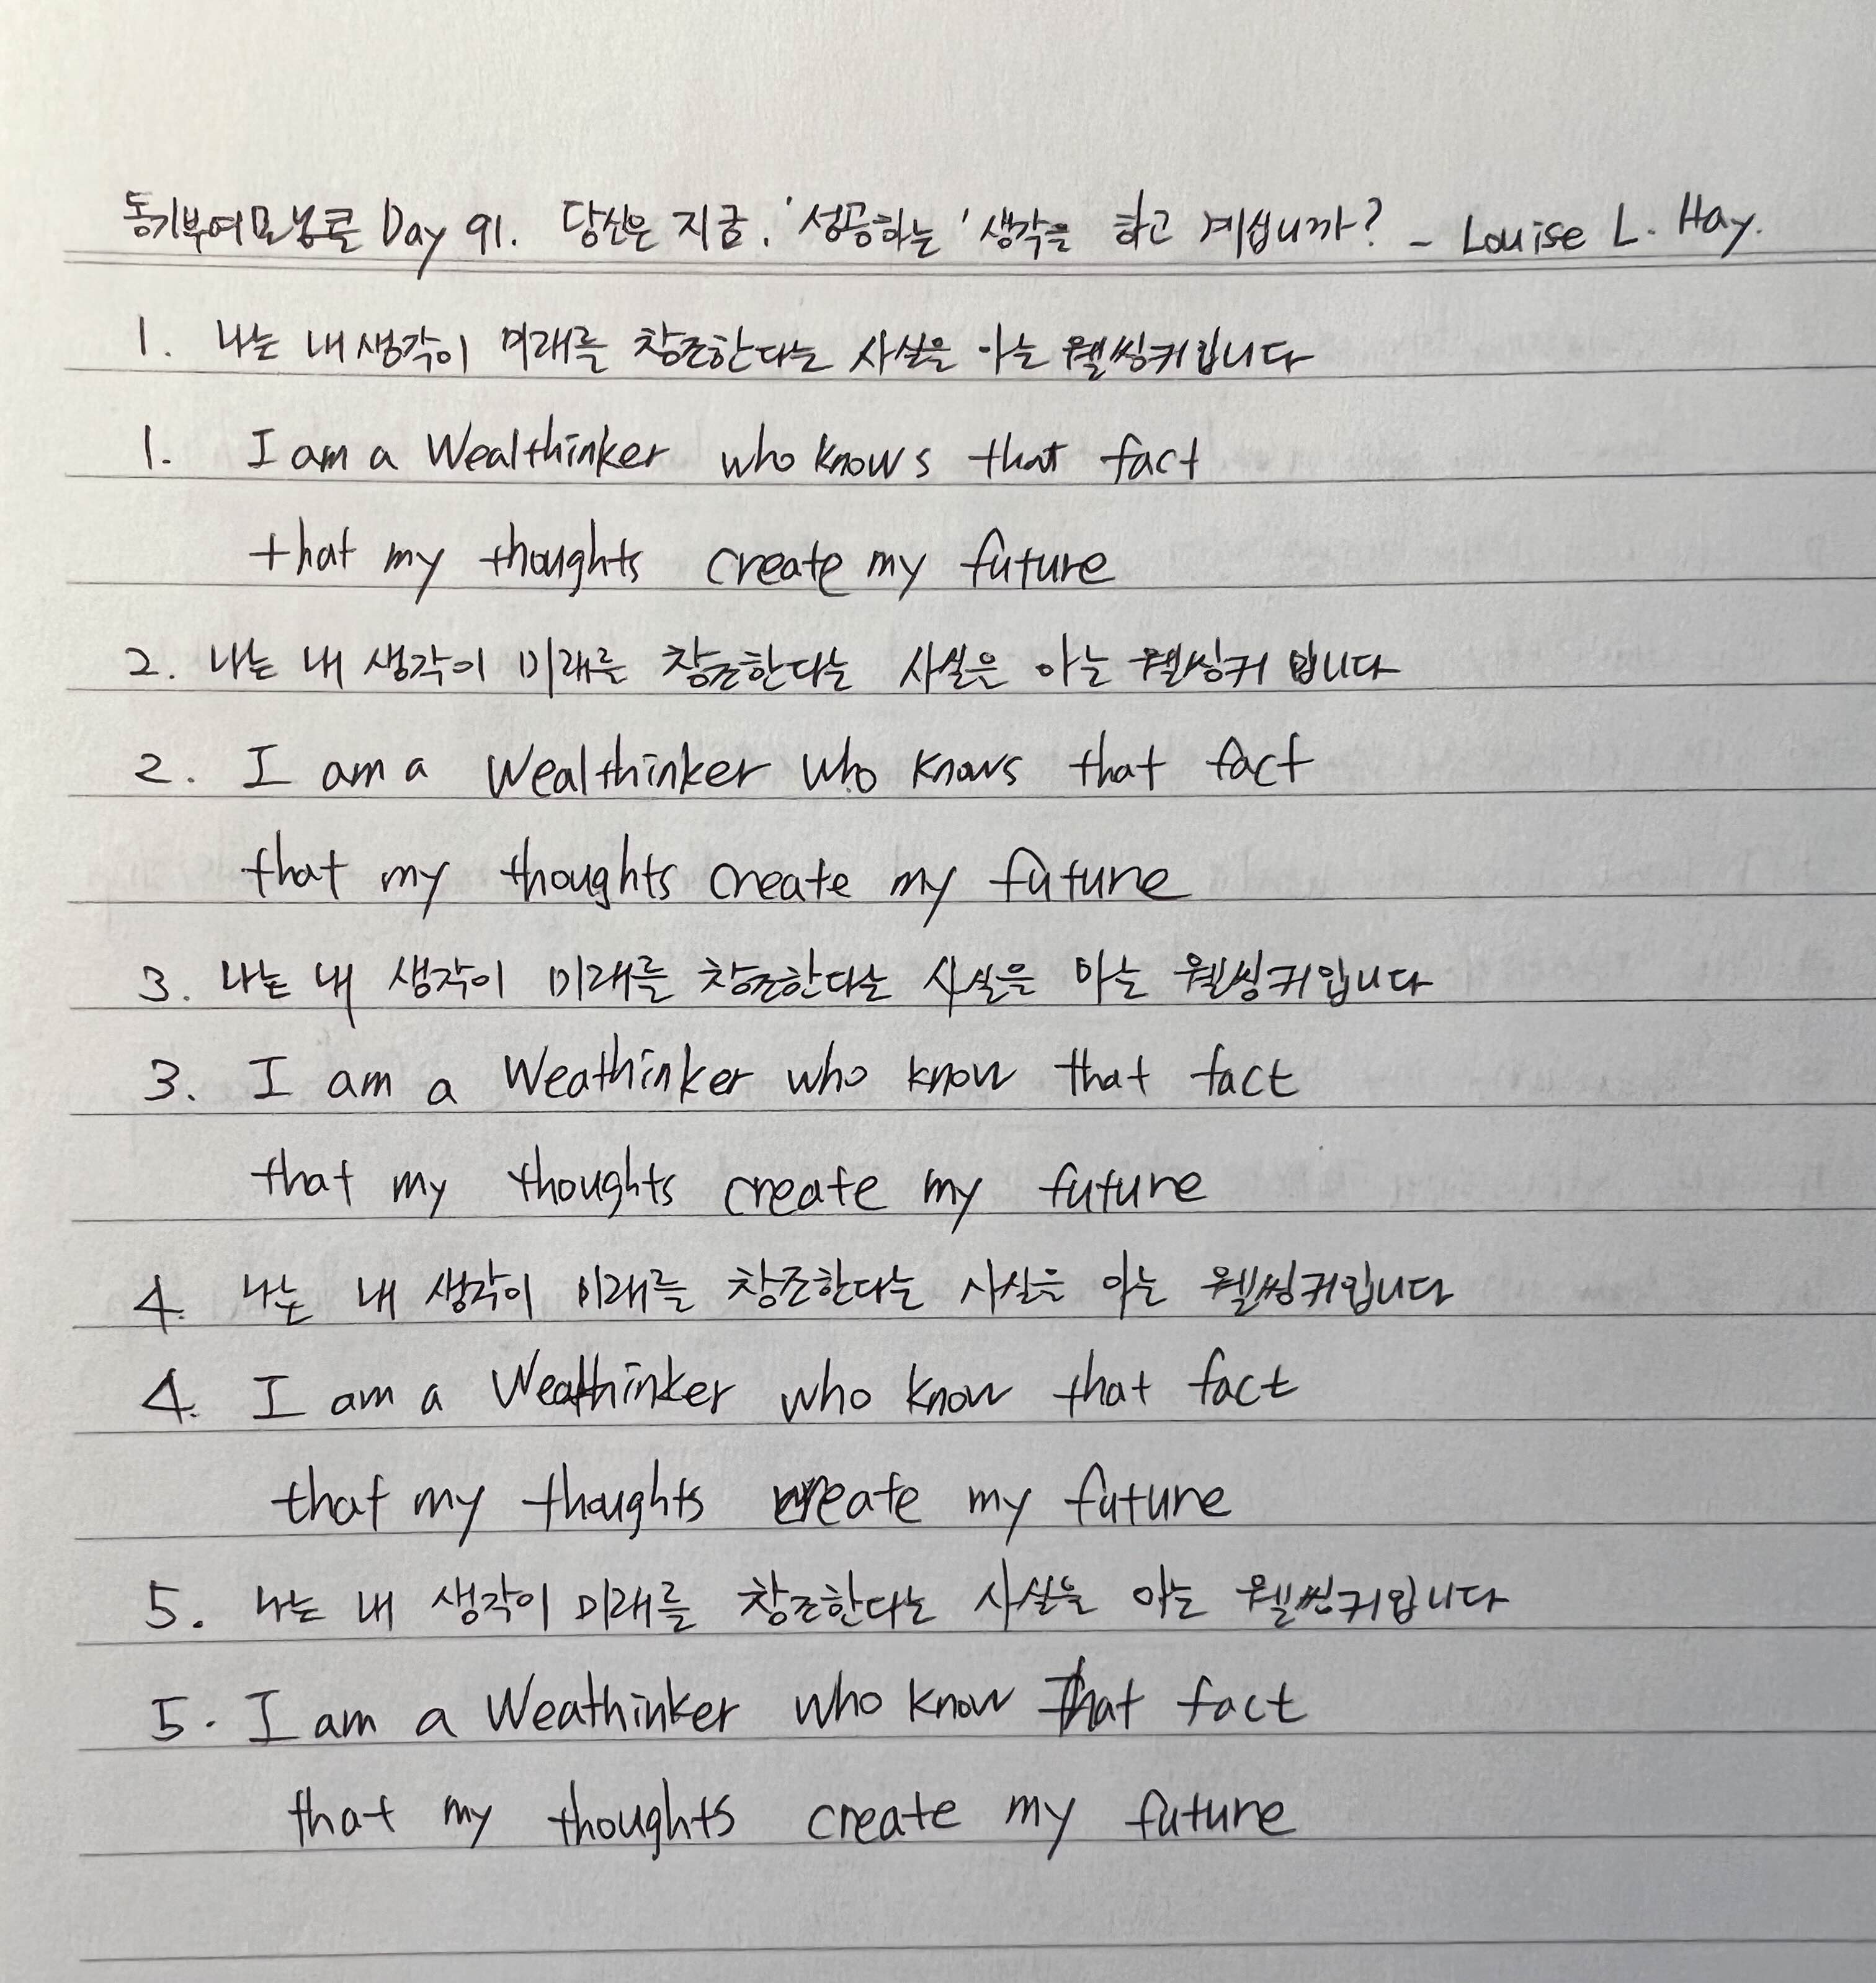 동기부여모닝콜 Day 91. 당신은 지금, '성공하는' 생각을 하고 계십니까? - Louise L. Hay.
1. 나는 내 생각이 미래를 창조한다는 사실을 아는 웰씽커입니다
1. I am a Wealthinker who knows that fact
that my thoughts create my future
2. 나는 내 생각이 미래를 창조한다는 사실은 아는 웰씽커 입니다
2. I am a Wealthinker who knows that fact
that my thoughts create my future
3. 나는 내 생각이 미래를 창조한다는 사실을 아는 웰씽커입니다
3. I am a Weathinker who know that fact
that my thoughts create my future
4. 나는 내 생각이 미래를 창조한다는 사실을 아는 웰씽커입니다
4. I am a Wealthinker who know that fact
that my thoughts create my future
5. 나는 내 생각이 미래를 창조한다는 사실을 아는 웰씬커입니다
5. I am a Weathinker who know that fact
that my thoughts create my future